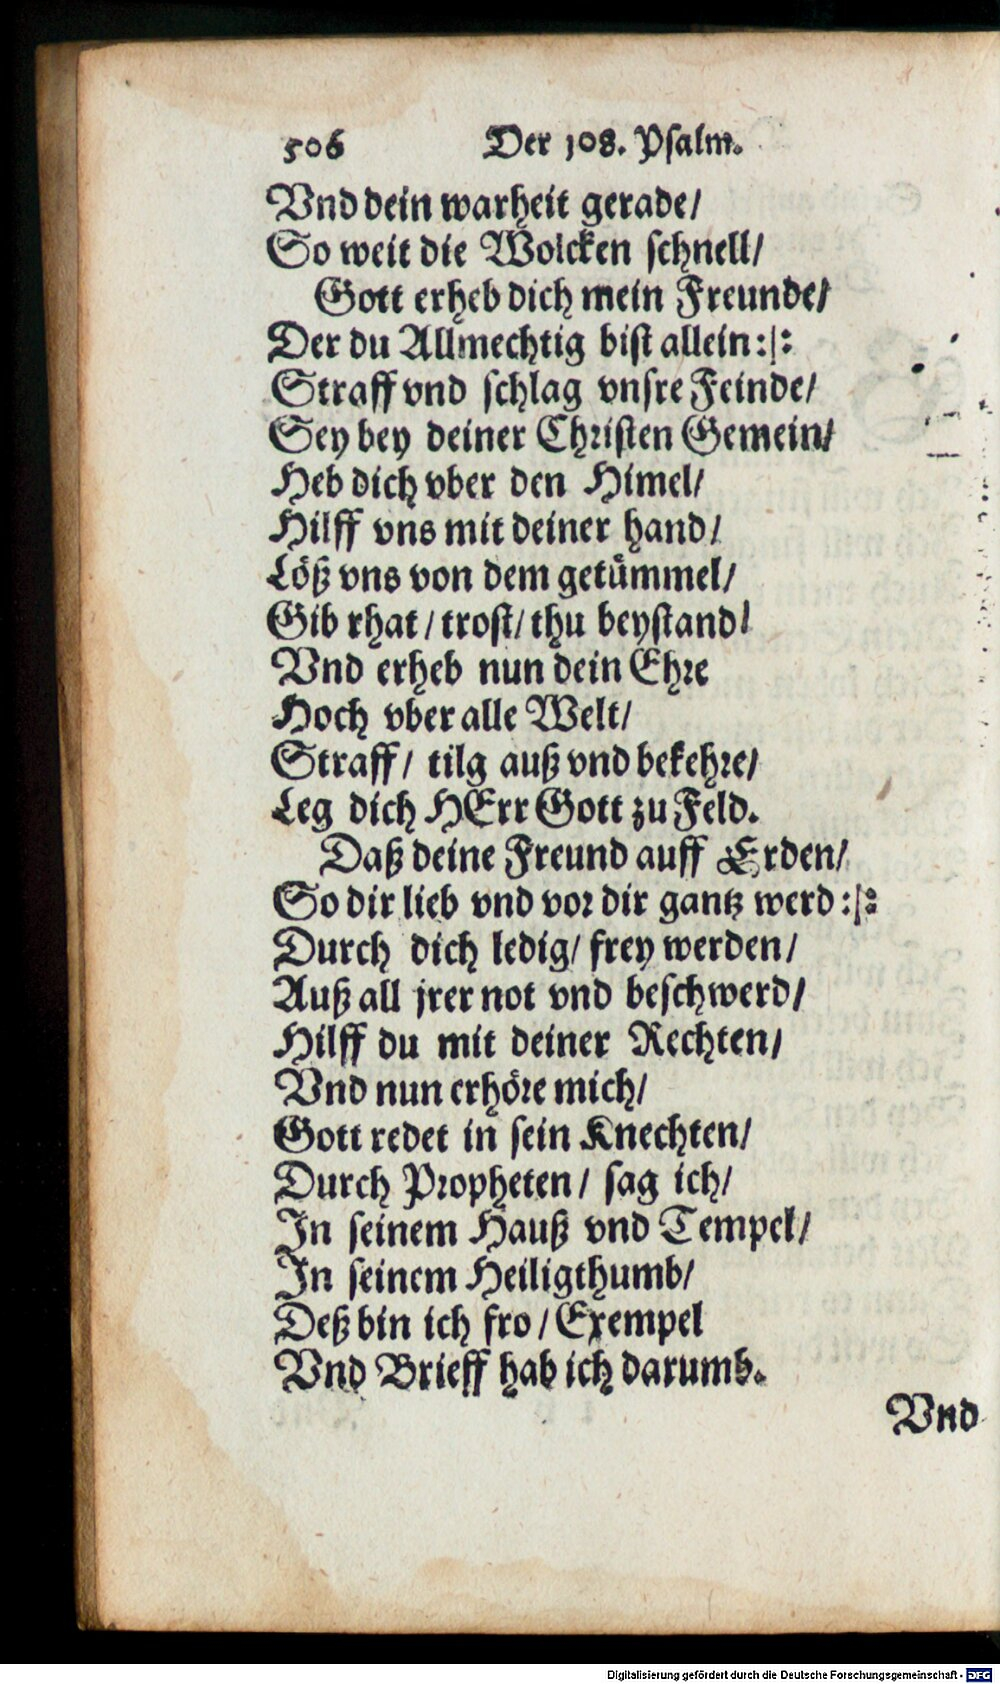 506 Der 108. Psalm.
Vnd dein warheit gerade/
So weit die Wolcken schnell/
Gott erheb dich mein Freunde/
Der du Allmechtig bist allein:/:
Straff vnd schlag vnsre Feinde/
Sey bey deiner Christen Gemein/
Heb dich vber den Himel/
Hilff vns mit deiner hand/
Löß vns von dem getümmel/
Gib rhat/ trost/ thu beystand/
Vnd erheb nun dein Ehre
Hoch vber alle Welt/
Straff/ tilg auß vnd bekehre/
Leg dich HErr Gott zu Feld.
Daß deine Freund auff Erden/
So dir lieb vnd vor dir gantz werd:/:
Durch dich ledig/ frey werden/
Auß all jrer not vnd beschwerd/
Hilff du mit deiner Rechten/
Vnd nun erhöre mich/
Gott redet in sein Knechten/
Durch Propheten/ sag ich/
In seinem Hauß vnd Tempel/
In seinem Heiligthumb/
Deß bin ich fro/ Exempel
Vnd Brieff hab ich darumb.
Vnd
Digitalisierung gefördert durch die Deutsche Forschungsgemeinschaft - DFG